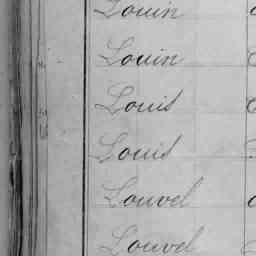 Louin
Louin
Louis
Louis
Louvel
Louvel